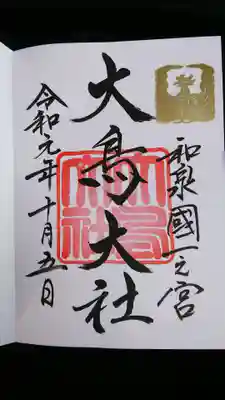 和泉國一之宮
大鳥大社
大鳥大社
令和元年十月五日